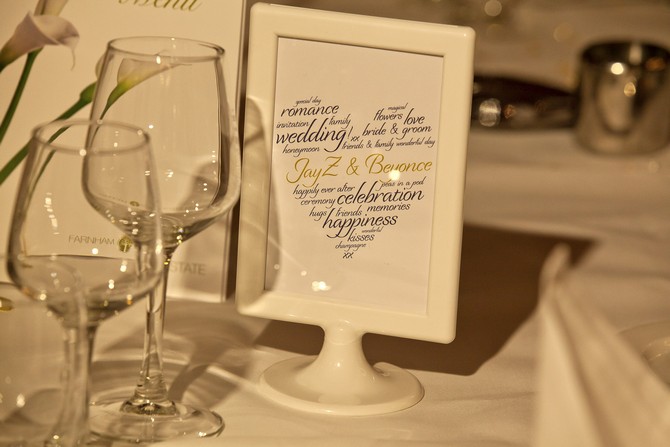 Menu
special day
romance magical
invitation family flowers love
wedding xx bride & groom
honeymoon friends & family wonderful day
JayZ & Beyonce
happily ever after peas in a pod
ceremony celebration
hugs friends memories
happiness
wonderful
kisses
champagne
xx
FARNHAM
ESTATE